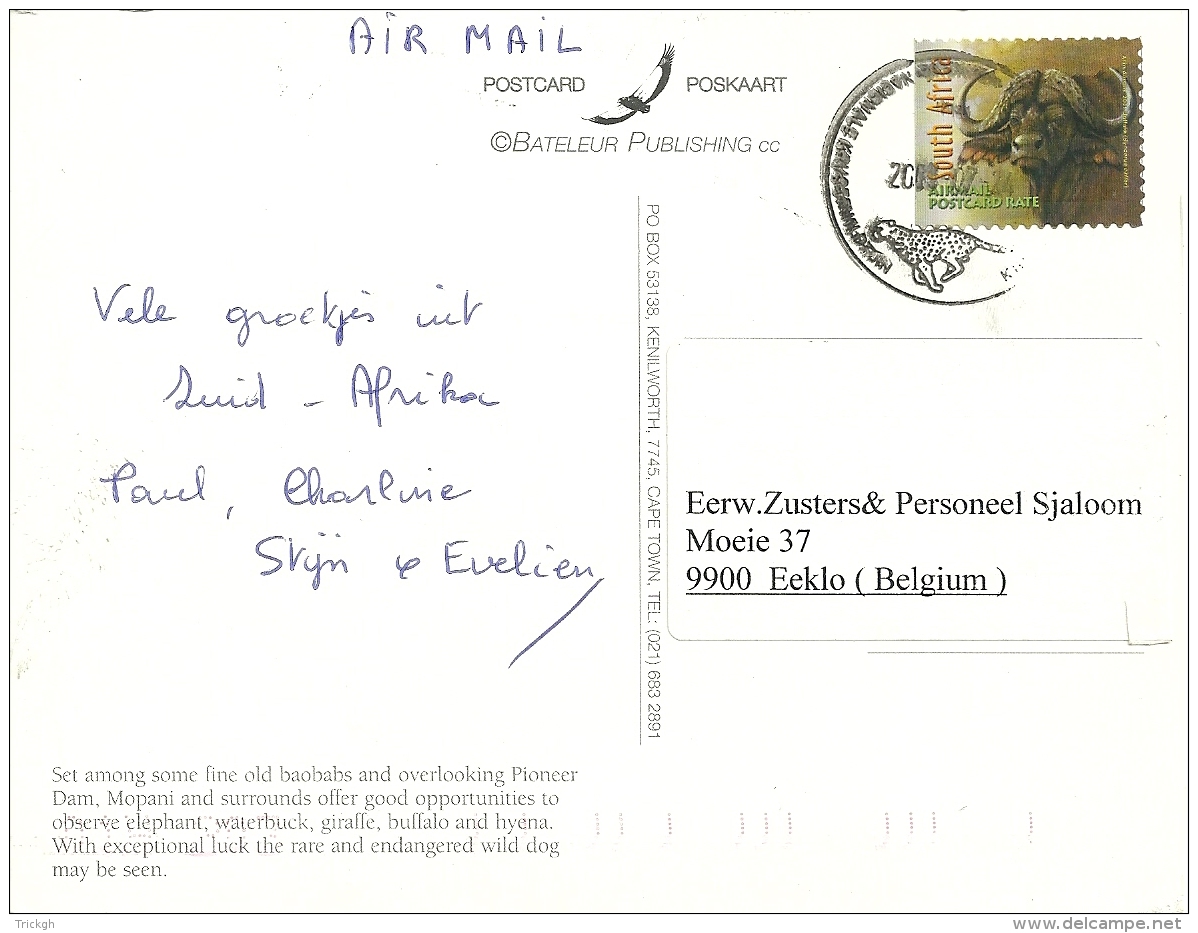 AIR MAIL
POSTCARD POSKAART
©BATELEUR PUBLISHING CC
South Africa
AIRMAIL
POSTCARD RATE
NASIONALE KRUGERWILDTUIN
Vele groetjes uit
Zuid - Afrika
Paul, Charline
Stijn & Evelien
PO BOX 53138, KENILWORTH, 7745, CAPE TOWN, TEL: (021) 683 2891
Eerw.Zusters& Personeel Sjaloom
Moeie 37
9900 Eeklo ( Belgium )
Set among some fine old baobabs and overlooking Pioneer
Dam, Mopani and surrounds offer good opportunities to
observe elephant, waterbuck, giraffe, buffalo and hyena.
With exceptional luck the rare and endangered wild dog
may be seen.
Trickgh
www.delcampe.net